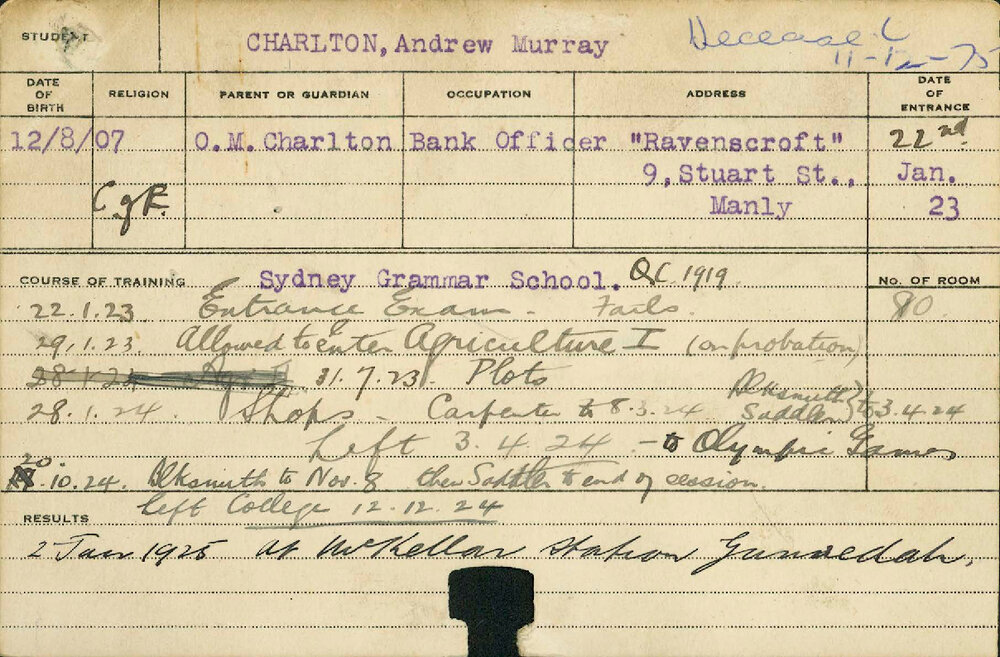 STUDENT CHARLTON, Andrew Murray Deceased
11-12-75
DATE OF BIRTH RELIGION PARENT OR GUARDIAN OCCUPATION ADDRESS DATE OF ENTRANCE
12/8/07 O.M. Charlton Bank Officer "Ravenscroft" 22nd.
9, Stuart St., Jan.
C of E. Manly 23
COURSE OF TRAINING Sydney Grammar School. QC 1919. No. OF ROOM
22.1.23 Entrance Exam - Fails. 80
29.1.23 Allowed to enter Agriculture I (on probation)
31.7.23. Plots
28.1.24. Shops - Carpenter to 8.3.24 Blksmith Saddler } to 3.4.24
Left 3.4.24 - to Olympic Games
20.10.24. Blksmith to Nov. 8 then Saddler to end of session.
left College 12.12.24
RESULTS
2 Jan 1925 at McKellar Station Gunnedah.